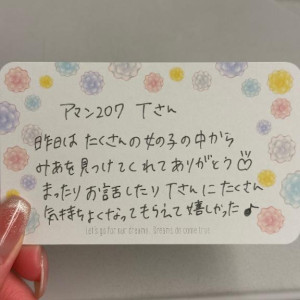 アマン207 Tさん
昨日は たくさんの女の子の中から
みあを見つけてくれてありがとう
まったりお話したりTさんにたくさん
気持ちよくなってもらえて嬉しかった♪
Let's go for our dreams. Dreams do come true.